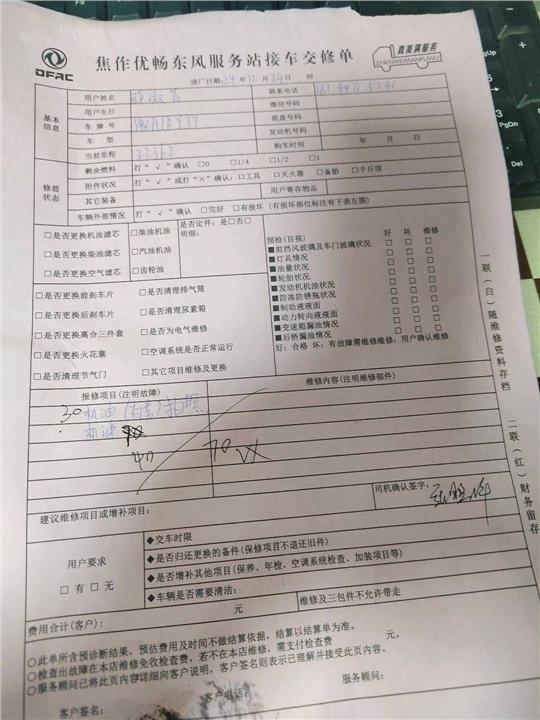 DFAC
焦作优畅东风服务站接车交修单
真美满服务
ZHENMEIMANFUWU
进厂日期:24年12月24日 时
基本信息
用户姓名
联系电话
用户生日
微信号码
车牌号
底盘号码
车型
发动机号码
当前里程 22362
购车时间 年 月 日
修前状态
剩余燃料 打“√”确认 □0 □1/4 □1/2 □1
附件状况 打“√”或打“×”确认:□工具 □灭火器 □备胎 □千斤顶
其它装备
用户寄存物品
车辆外部情况 打“√”确认 □完好 □有损坏(有损坏部位标注有下表左图)
□是否更换机油滤芯 □柴油机油 是否定件:是□否□
明细:
□是否更换柴油滤芯 □汽油机油
□是否更换空气滤芯 □齿轮油
□是否更换前刹车片 □是否清理排气筒
□是否更换后刹车片 □是否清理尿素箱
□是否更换离合三件套 □是否为电气维修
□是否更换火花塞 □空调系统是否正常运行
□是否清理节气门 □其它项目维修及更换
预检(目视) 好 坏 维修
■前挡风玻璃及车门玻璃状况 □ □ □
■灯具情况 □ □ □
■油量状况 □ □ □
■轮胎状况 □ □ □
■发动机机油状况 □ □ □
■防冻防锈瓶状况 □ □ □
■制动液液面 □ □ □
■动力转向液液面 □ □ □
■变速箱漏油情况 □ □ □
■后桥漏油情况 □ □ □
好:合格 坏:有故障需维修维修:用户确认维修
报修项目(注明故障)
维修内容(注明维修部件)
30 机油
机滤
40
70
司机确认签字:
建议维修项目或增补项目:
用户要求
□有 □无
◆交车时限
◆是否归还更换的备件(保修项目不退还旧件)
◆是否增补其他项目(保养、年检、空调系统检查、加装项目等)
◆车辆是否需要清洁:
费用合计(客户): 元
维修及三包件不允许带走
○此单所含预诊断结果,预估费用及时间不做结算依据,结算以结算单为准。
○检查出故障在本店维修免收检查费,若不在本店维修,需支付检查费 元。
○服务顾问已将此页内容详细向客户说明,客户签名则表示已理解并接受此页内容。
客户签名: 客户电话: 服务顾问:
一联(白)随维修资料存档
二联(红)财务留存